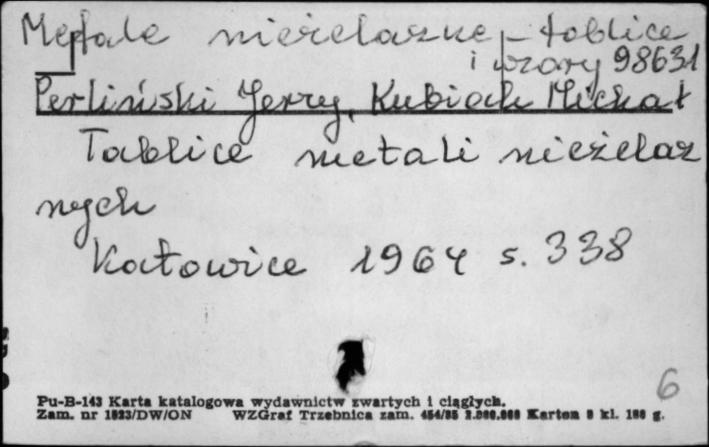 Metale nieżelazne - tablice
i wzory 98631
Perliński Jerzy, Kubiak Michał
Tablice metali nieżelaz
nych
Katowice 1964 s. 338
6
Pu-B-143 Karta katalogowa wydawnictw zwartych i ciągłych.
Zam. nr 1823/DW/ON WZGraf Trzebnica zam. 454/85 2.000.000 Karton 8 kl. 180 g.